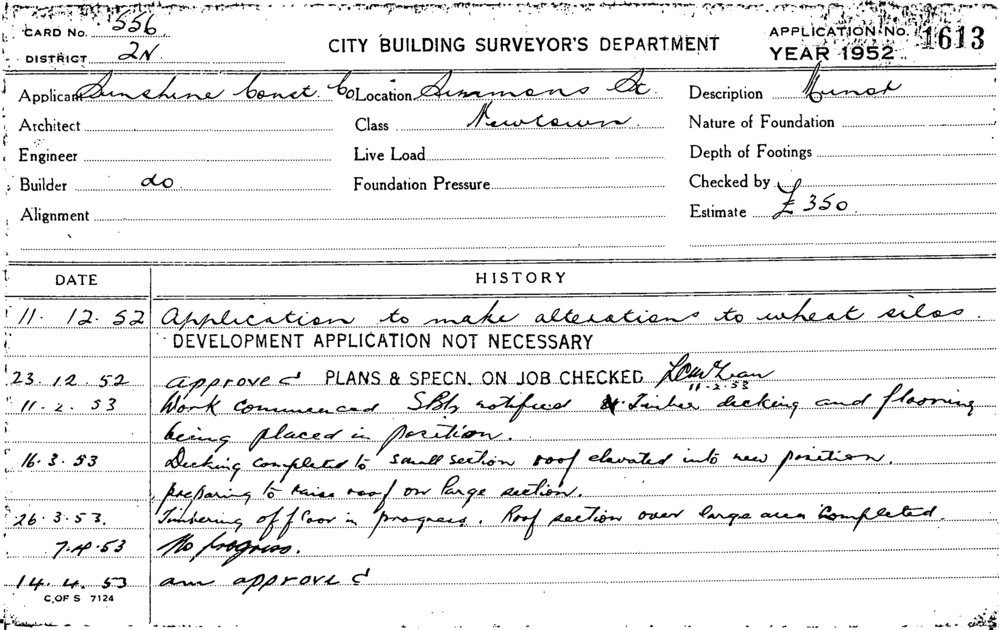 CARD No. 556
DISTRICT 2N
CITY BUILDING SURVEYOR'S DEPARTMENT
APPLICATION No. 1613
YEAR 1952
Applicant Sunshine Const. Co Location Simmons St. Description
Architect Class Newtown Nature of Foundation
Engineer Live Load Depth of Footings
Builder do Foundation Pressure Checked by
Alignment Estimate £350.
DATE HISTORY
11. 12. 52 Application to make alterations to wheat silos.
DEVELOPMENT APPLICATION NOT NECESSARY
23. 12. 52 approved PLANS & SPECN. ON JOB CHECKED
11-2-53
11. 2. 53 Work commenced notified Timber decking and flooring
being placed in position.
16. 3. 53 Decking completed to small section roof elevated into new position.
preparing to raise roof on large section.
26. 3. 53. Timbering of floor in progress. Roof section over large area completed.
7. 4. 53 No progress.
14. 4. 53 am approved
C. OF S 7124